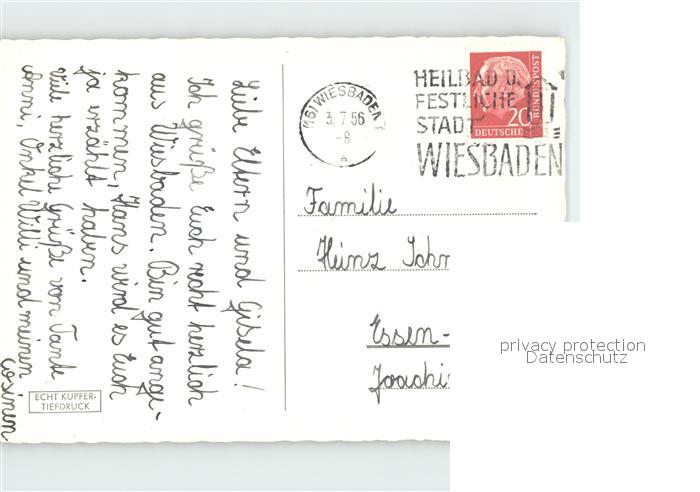 Liebe Eltern und Gisela!
Ich grüße Euch recht herzlich
aus Wiesbaden. Bin gut ange-
kommen, Hans wird es Euch
ja erzählt haben.
Viele herzliche Grüße von Tante
Anni, Onkel Willi und meinen
Cosinen
ECHT KUPFER-
TIEFDRUCK
(16) WIESBADEN 1
3.7.56
-8
a
HEILBAD U.
FESTLICHE
STADT
WIESBADEN
20
DEUTSCHE
BUNDESPOST
Familie
Heinz Schr
Essen-
Joachi
privacy protection
Datenschutz